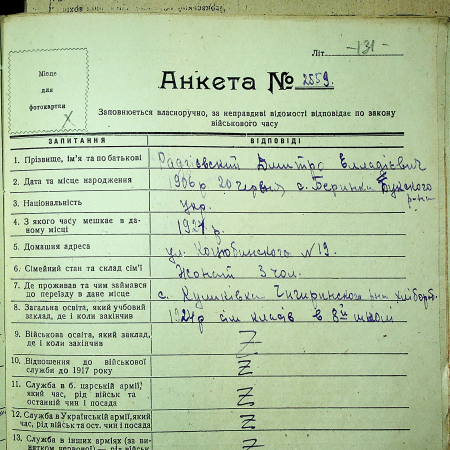 Літ -131-
Місце
для
фотокартки
Анкета № 2559.
Заповнюється власноручно, за неправдиві відомості відповідає по закону
військового часу
ЗАПИТАННЯ ВІДПОВІДІ
1. Прізвище, ім'я та по батькові Дмитро
2. Дата та місце народження 1906 р 20 червня с. Букського
р-на
3. Національність укр.
4. З якого часу мешкає в да-
ному місці 1927 р.
5. Домашня адреса ул. Коцюбинского №19.
6. Сімейний стан та склад сім'ї Жонат 3 чол.
7. Де проживав та чим займався
до переїзду в дане місце с. Чигиринского р-на хлібороб.
8. Загальна освіта, який учбовий
заклад, де і коли закінчив 1924р сім класів в школі
9. Військова освіта, який заклад,
де і коли закінчив Z
10. Відношення до військової
служби до 1917 року Z
11. Служба в б. царській армії,
який час, рід військ та
останній чин і посада Z
12. Служба в Українській армії, який
час, рід військ та ост. чин і посада Z
13. Служба в інших арміях (за ви-
нятком червоної) — рід військ Z